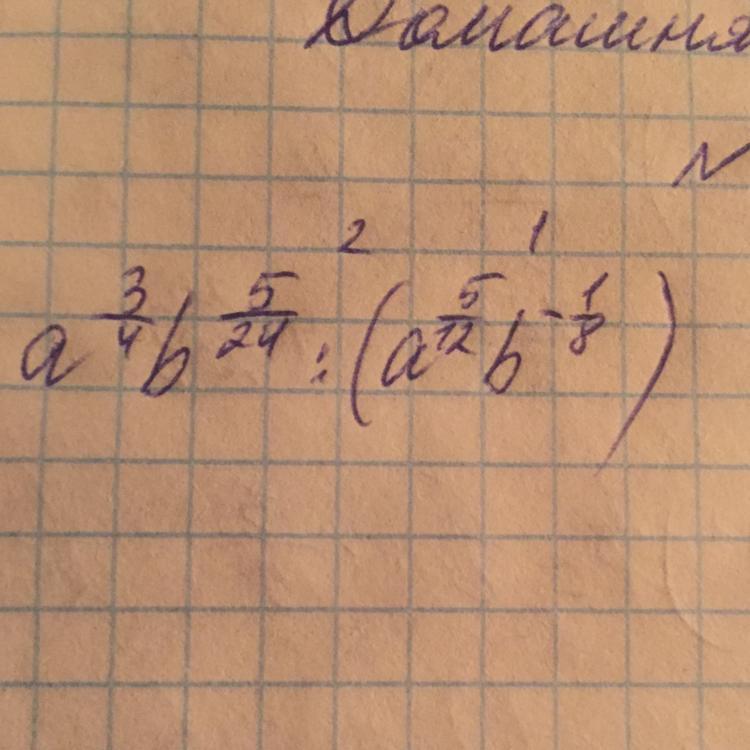 Домашня
N
2 1
a^{\frac{3}{4}} b^{\frac{5}{24}} : (a^{\frac{5}{12}} b^{-\frac{1}{8}})